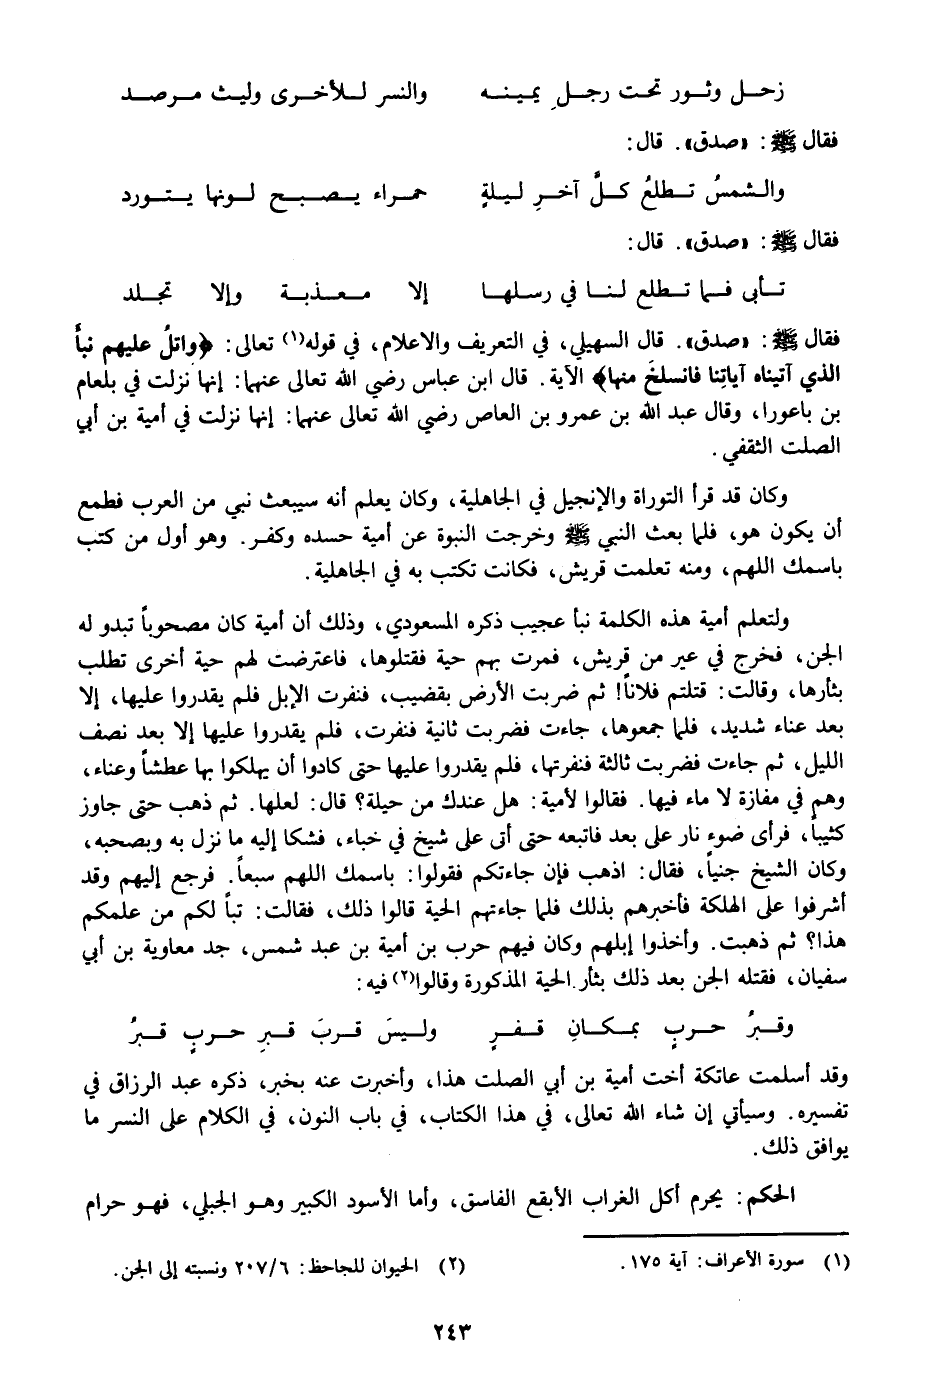 زحل وثور تحت رجل يمينه والنسر للأخرى وليث مرصد
فقال ﷺ: «صدق». قال:
والشمسُ تطلعُ كلَّ آخرِ ليلةٍ حمراء يصبح لونها يتورد
فقال ﷺ: «صدق». قال:
تأبى فما تطلع لنا في رسلها إلا معذبة وإلا تجلد
فقال ﷺ: «صدق». قال السهيلي، في التعريف والاعلام، في قوله(١) تعالى: ﴿واتلُ عليهم نبأَ
الذي آتيناه آياتِنا فانسلخَ منها﴾ الآية. قال ابن عباس رضي الله تعالى عنهما: إنها نزلت في بلعام
بن باعورا، وقال عبد الله بن عمرو بن العاص رضي الله تعالى عنهما: إنها نزلت في أمية بن أبي
الصلت الثقفي.
وكان قد قرأ التوراة والإنجيل في الجاهلية، وكان يعلم أنه سيبعث نبي من العرب فطمع
أن يكون هو، فلما بعث النبي ﷺ وخرجت النبوة عن أمية حسده وكفر. وهو أول من كتب
باسمك اللهم، ومنه تعلمت قريش، فكانت تكتب به في الجاهلية.
ولتعلم أمية هذه الكلمة نبأ عجيب ذكره المسعودي، وذلك أن أمية كان مصحوباً تبدو له
الجن، فخرج في عير من قريش، فمرت بهم حية فقتلوها، فاعترضت لهم حية أخرى تطلب
بثأرها، وقالت: قتلتم فلاناً! ثم ضربت الأرض بقضيب، فنفرت الإبل فلم يقدروا عليها، إلا
بعد عناء شديد، فلما جمعوها، جاءت فضربت ثانية فنفرت، فلم يقدروا عليها إلا بعد نصف
الليل، ثم جاءت فضربت ثالثة فنفرتها، فلم يقدروا عليها حتى كادوا أن يهلكوا بها عطشاً وعناء،
وهم في مفازة لا ماء فيها. فقالوا لأمية: هل عندك من حيلة؟ قال: لعلها. ثم ذهب حتى جاوز
كثيباً، فرأى ضوء نار على بعد فاتبعه حتى أتى على شيخ في خباء، فشكا إليه ما نزل به وبصحبه،
وكان الشيخ جنياً، فقال: اذهب فإن جاءتكم فقولوا: باسمك اللهم سبعاً. فرجع إليهم وقد
أشرفوا على الهلكة فأخبرهم بذلك فلما جاءتهم الحية قالوا ذلك، فقالت: تباً لكم من علمكم
هذا؟ ثم ذهبت. وأخذوا إبلهم وكان فيهم حرب بن أمية بن عبد شمس، جد معاوية بن أبي
سفيان، فقتله الجن بعد ذلك بثأر الحية المذكورة وقالوا(٢) فيه:
وقبرُ حربٍ بمكانِ قفرٍ وليسَ قربَ قبرِ حربٍ قبرُ
وقد أسلمت عاتكة أخت أمية بن أبي الصلت هذا، وأخبرت عنه بخبر، ذكره عبد الرزاق في
تفسيره. وسيأتي إن شاء الله تعالى، في هذا الكتاب، في باب النون، في الكلام على النسر ما
يوافق ذلك.
الحكم: يحرم أكل الغراب الأبقع الفاسق، وأما الأسود الكبير وهو الجبلي، فهو حرام
(١) سورة الأعراف: آية ١٧٥.
(٢) الحيوان للجاحظ: ٢٠٧/٦ ونسبته إلى الجن.
٢٤٣